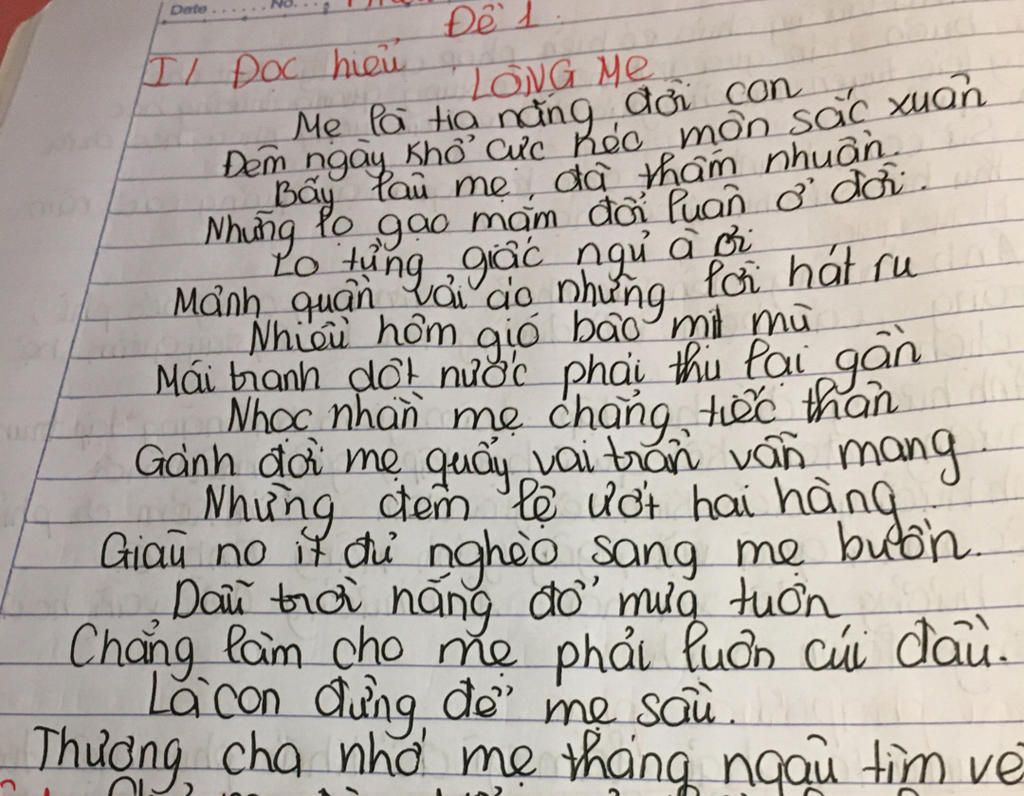 Date ...... No. ...
Đề 1
I/ Đọc hiểu
LÒNG MẸ
Mẹ là tia nắng đời con
Đêm ngày khổ cực héo mòn sắc xuân
Bấy lâu mẹ đã thấm nhuần
Những lo gạo mắm đời luân ở đời.
Lo từng giấc ngủ à ơi
Mảnh quần vải áo những lời hát ru
Nhiều hôm gió bão mịt mù
Mái tranh dột nước phải thu lại gần
Nhọc nhằn mẹ chẳng tiếc thân
Gánh đời mẹ quẩy vai trần vẫn mang.
Những đêm lệ ướt hai hàng
Giàu no ít đủ nghèo sang mẹ buồn.
Dẫu trời nắng đổ mưa tuôn
Chẳng làm cho mẹ phải luồn cúi đầu.
Là con đừng để mẹ sầu.
Thương cha nhớ mẹ tháng ngâu tìm về